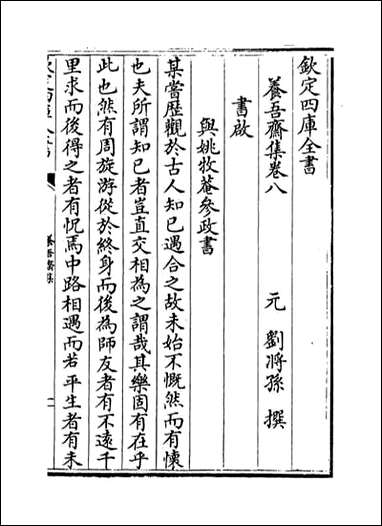 欽定四庫全書
養吾齋集卷八
元 劉將孫 撰
書啟
與姚牧菴參政書
某嘗歷觀於古人知已遇合之故未始不慨然而有懷
也夫所謂知已者豈直交相為之謂哉其樂固有在乎
此也然有周旋游從於終身而後為師友者有不遠千
里求而後得之者有怳焉中路相遇而若平生者有未
養吾齋集